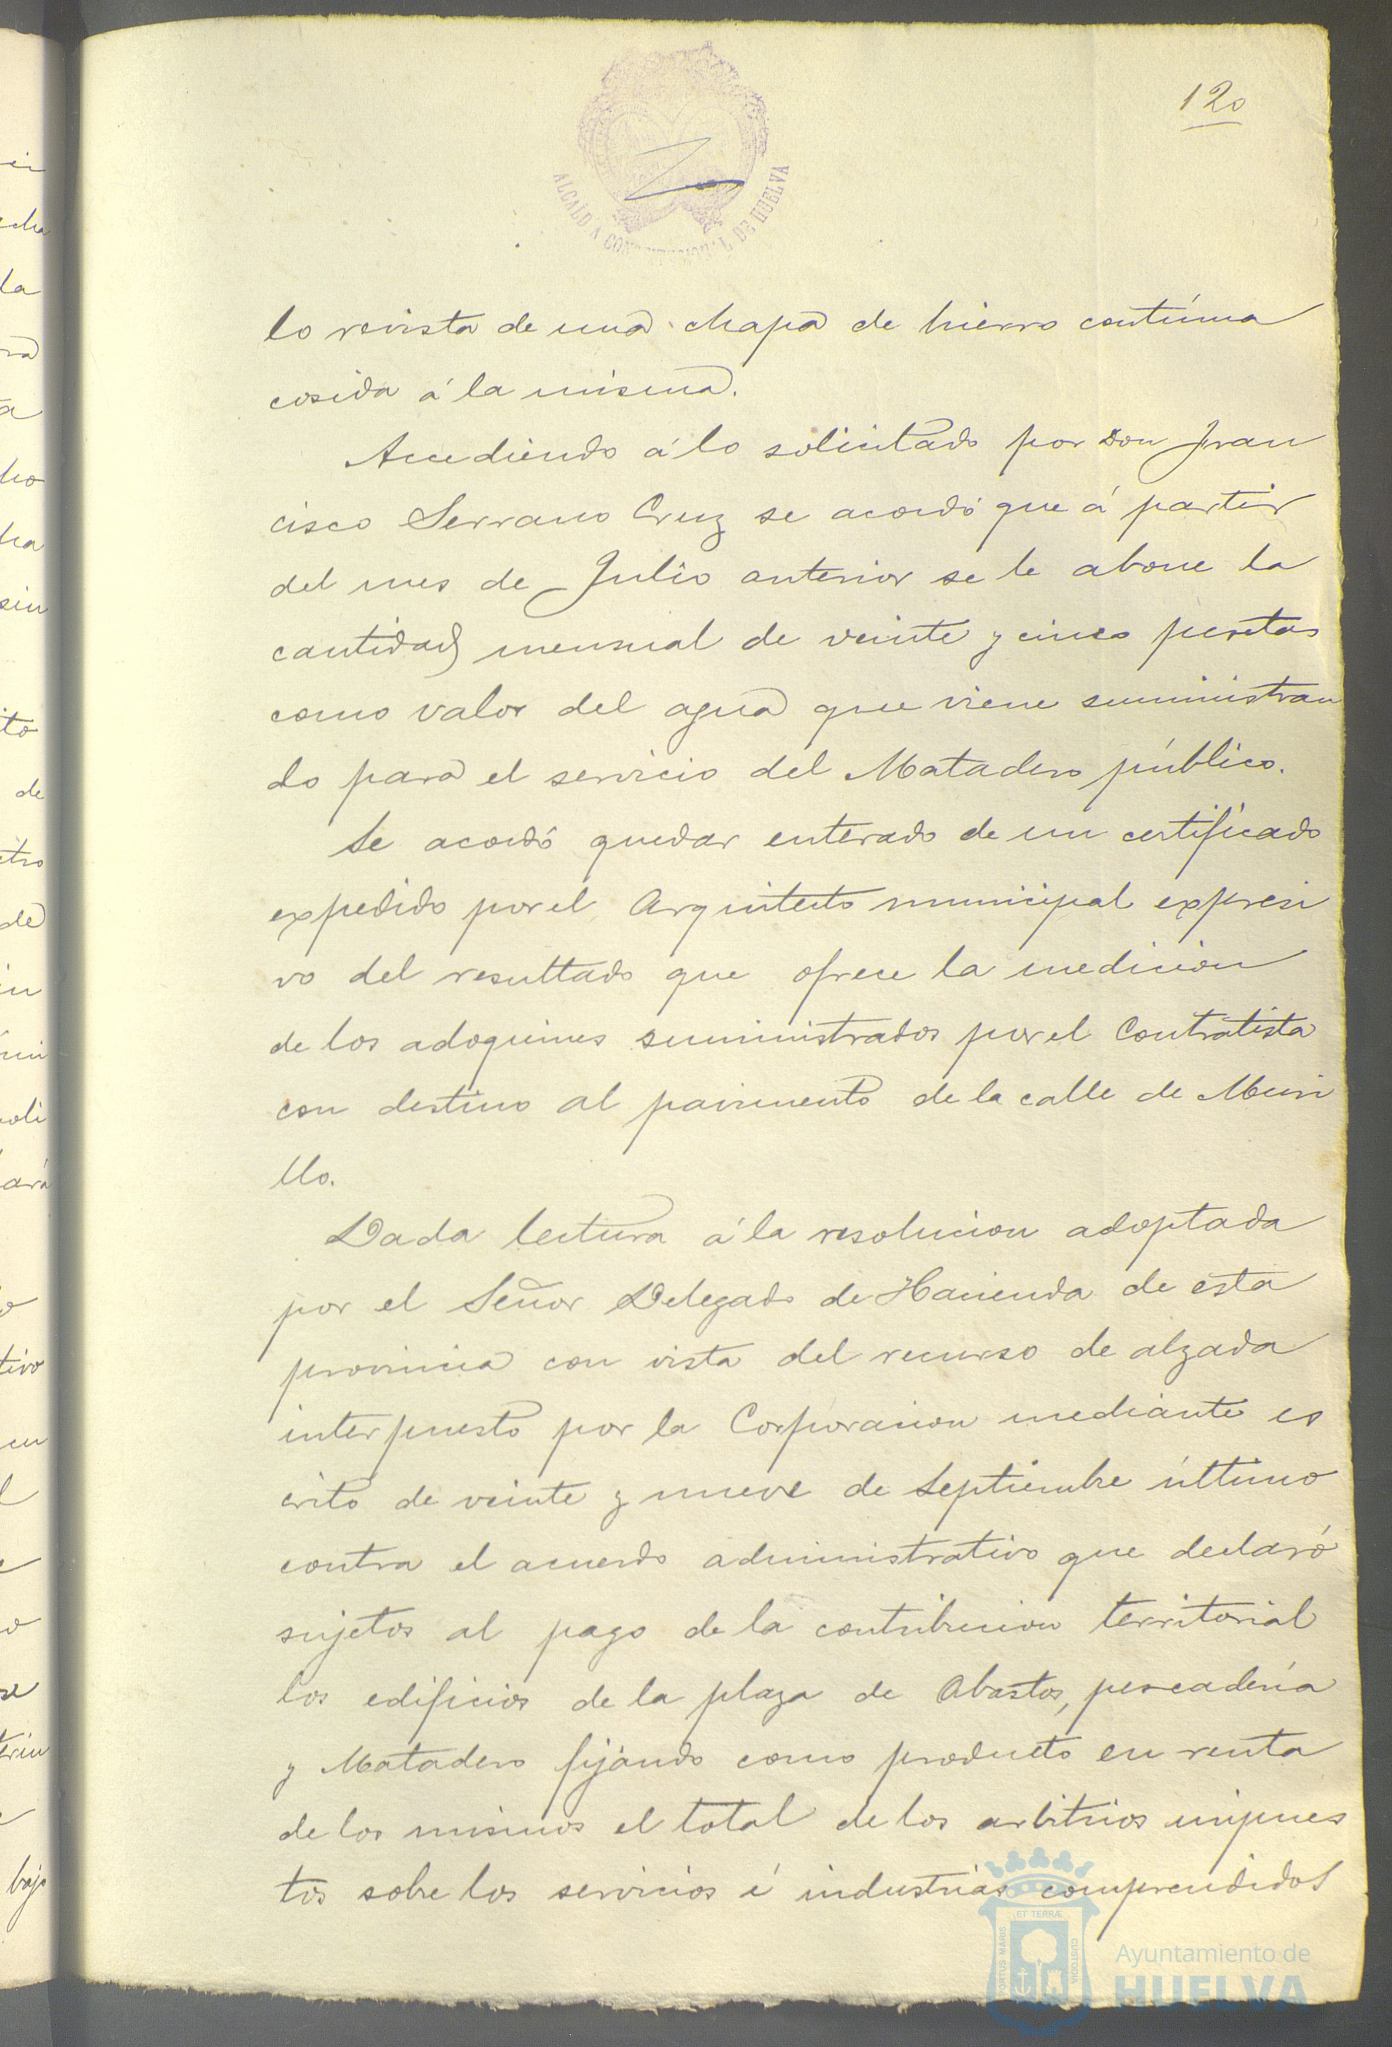 120
ALCALDIA CONSTITUCIONAL DE HUELVA
lo revista de una chapa de hierro contínua
cosida á la misma.
Accediendo á lo solicitado por Don Fran
cisco Serrano Cruz se acordó que á partir
del mes de Julio anterior se le abone la
cantidad mensual de veinte y cinco pesetas
como valor del agua que viene suministran
do para el servicio del Matadero público.
Se acordó quedar enterado de un certificado
expedido por el Arquitecto municipal expresi
vo del resultado que ofrece la medicion
de los adoquines suministrados por el Contratista
con destino al pavimento de la calle de Muri
llo.
Dada lectura á la resolucion adoptada
por el Señor Delegado de Hacienda de esta
provincia con vista del recurso de alzada
interpuesto por la Corporacion mediante es
crito de veinte y nueve de Septiembre último
contra el acuerdo administrativo que declaró
sujetos al pago de la contribucion territorial
los edificios de la plaza de Abastos, pescadería
y Matadero fijando como producto en renta
de los mismos el total de los arbitrios impues
tos sobre los servicios é industrias comprendidos
PORTUS MARIS
ET TERRÆ
CUSTODIA
Ayuntamiento de
HUELVA